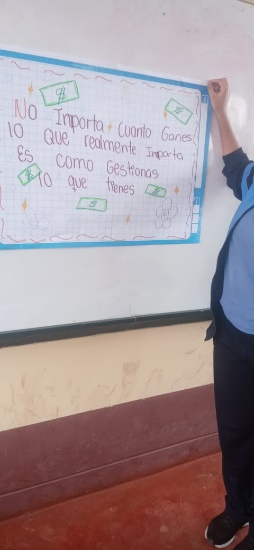 No Importa Cuanto Ganes
lo Que realmente Importa
Es como Gestionas
lo que tienes